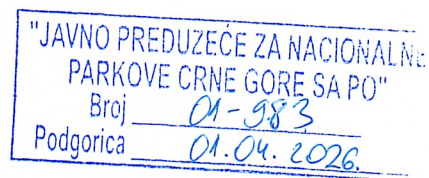 "JAVNO PREDUZEĆE ZA NACIONALNE
PARKOVE CRNE GORE SA PO"
Broj 01-983
Podgorica 01.04.2026.